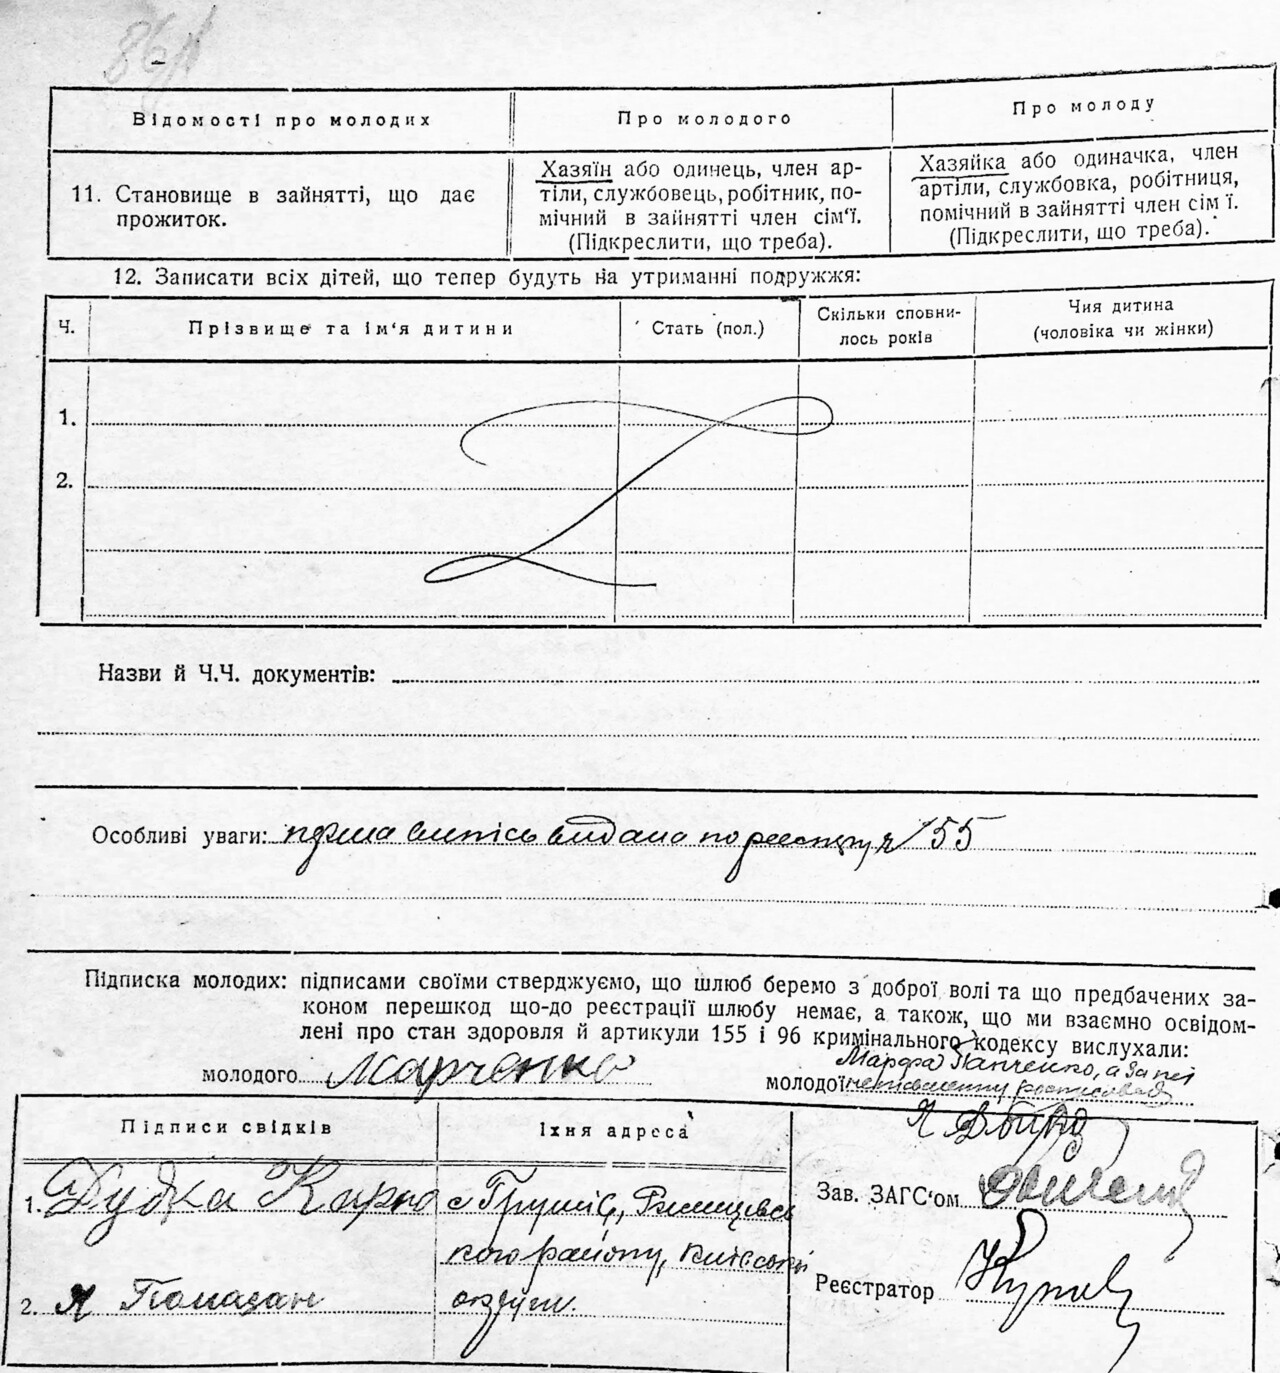 86
Відомості про молодих
Про молодого
Про молоду
11. Становище в зайнятті, що дає
прожиток.
Хазяїн або одинець, член ар-
тіли, службовець, робітник, по-
мічний в зайнятті член сім'ї.
(Підкреслити, що треба).
Хазяйка або одиначка, член
артіли, службовка, робітниця,
помічний в зайнятті член сім ї.
(Підкреслити, що треба).
12. Записати всіх дітей, що тепер будуть на утриманні подружжя:
Ч.
Прізвище та ім'я дитини
Стать (пол.)
Скільки сповни-
лось років
Чия дитина
(чоловіка чи жінки)
1.
2.
Назви й Ч.Ч. документів:
Особливі уваги: перша випісь видана по реєстру 155
Підписка молодих: підписами своїми стверджуємо, що шлюб беремо з доброї волі та що предбачених за-
коном перешкод що-до реєстрації шлюбу немає, а також, що ми взаємно освідом-
лені про стан здоровля й артикули 155 і 96 кримінального кодексу вислухали:
молодого Марченко
Марфа Панченко, а за неї
молодої неписьменну
Підписи свідків
Їхня адреса
1. Дудка Карпо
с Грушів, Ржищевсь
кого району, Київської
округи.
2. Я Помазан
Зав. ЗАГС'ом
Реєстратор